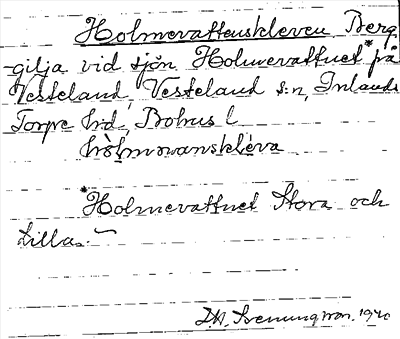 Holmevattenskleven Berg
-gilja vid sjön Holmevattnet* på
Vesteland, Vesteland s:n, Inlands
Torpe hd, Bohus l
hòlmovanskléva
*Holmevattnet Stora och
Lilla.
1940